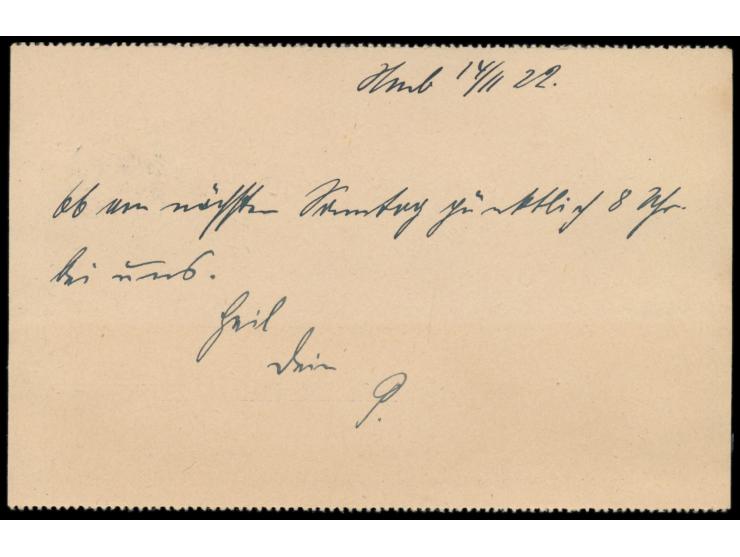 Hmb 14/11 22.
bb am nächsten Sonntag pünktlich 8 Uhr.
bei uns.
Heil
Dein
P.